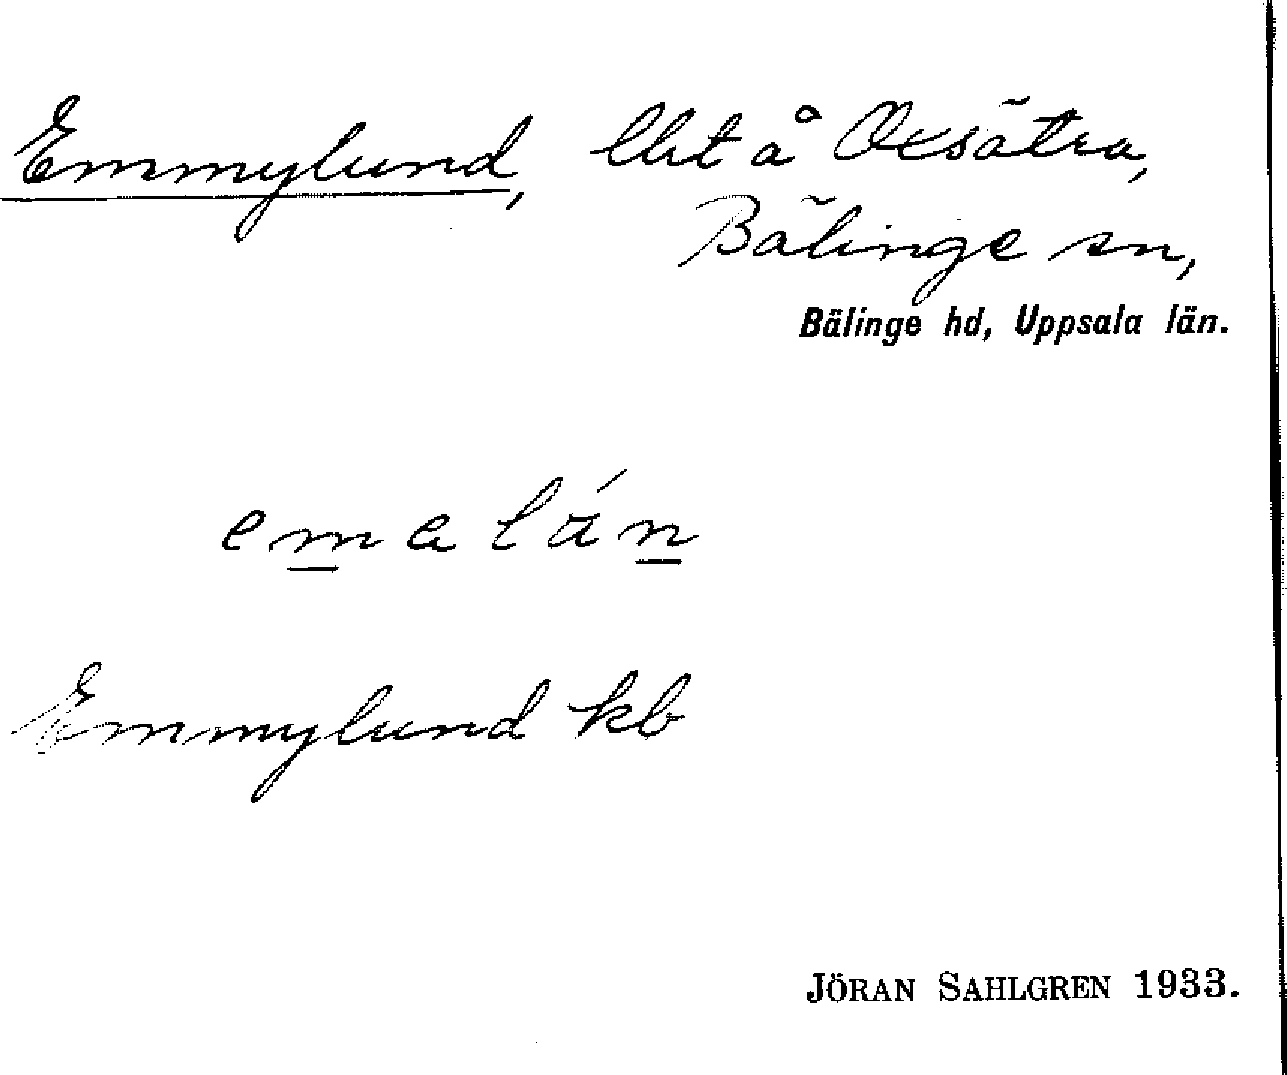 Emmylund, lht å Oxsätra,
Bälinge sn,
Bälinge hd, Uppsala län.
Emmylund kb
JÖRAN SAHLGREN 1933.